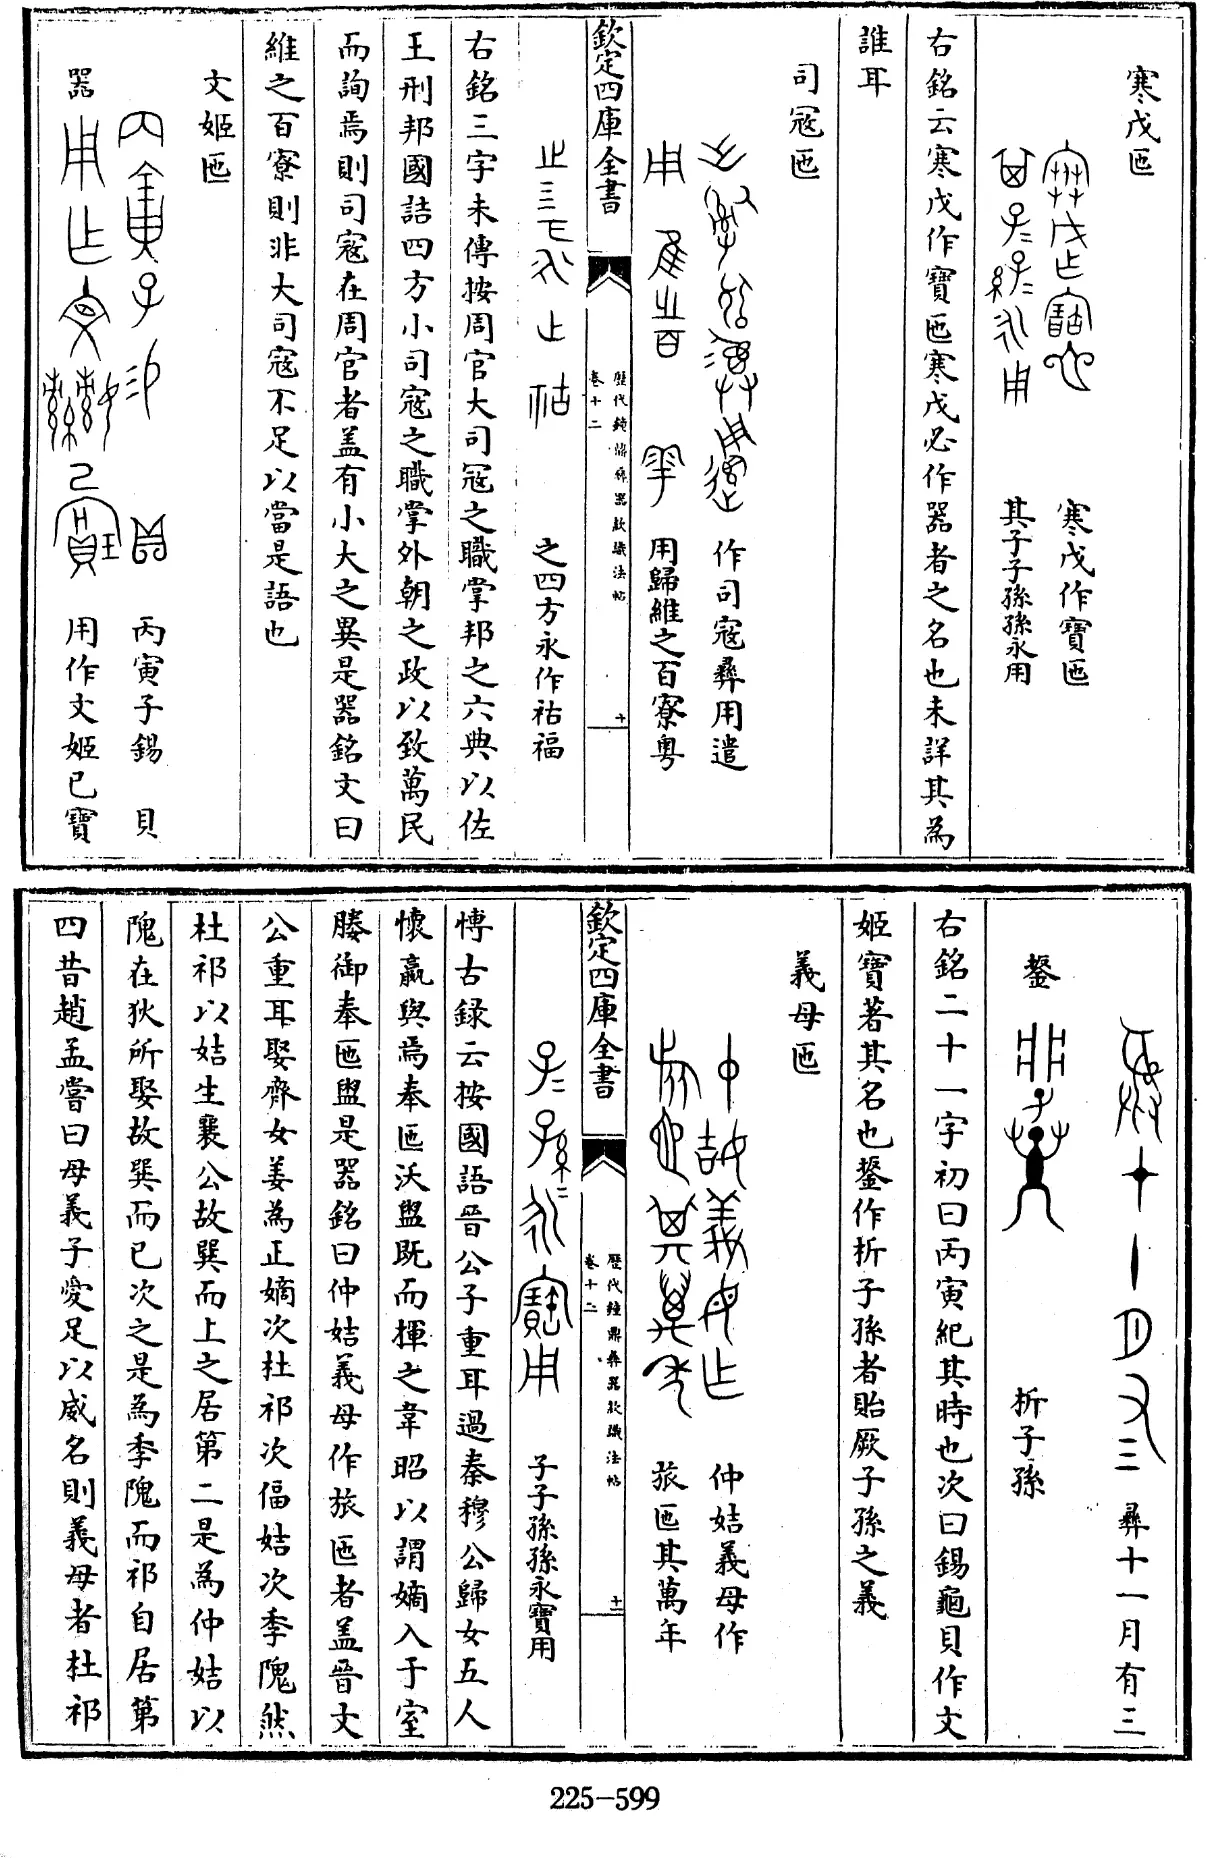 寒戊匜
寒戊作寶匜
其子子孫孫永用
右銘云寒戊作寶匜寒戊必作器者之名也未詳其為
誰耳
司寇匜
作司寇彛用遣
用歸維之百寮粤
欽定四庫全書
歴代鐘鼎彛器款識法帖
卷十二
十
之四方永作祜福
右銘三字未傳按周官大司寇之職掌邦之六典以佐
王刑邦國詰四方小司寇之職掌外朝之政以致萬民
而詢焉則司寇在周官者盖有小大之異是器銘文曰
維之百寮則非大司寇不足以當是語也
文姬匜
丙寅子錫 貝
器
用作文姬己寶
彛十一月有三
鋬
析子孫
右銘二十一字初曰丙寅紀其時也次曰錫龜貝作文
姬寶著其名也鋬作析子孫者貽厥子孫之義
義母匜
仲姞義母作
旅匜其萬年
欽定四庫全書
歴代鐘鼎彛器款識法帖
卷十二
十一
子子孫孫永寶用
博古録云按國語晉公子重耳過秦穆公歸女五人
懷嬴與焉奉匜沃盥既而揮之韋昭以謂嫡入于室
媵御奉匜盥是器銘曰仲姞義母作旅匜者盖晉文
公重耳娶齊女姜為正嫡次杜祁次偪姞次季隗然
杜祁以姞生襄公故巽而上之居第二是為仲姞以
隗在狄所娶故巽而已次之是為季隗而祁自居第
四昔趙孟嘗曰母義子愛足以威名則義母者杜祁
225-599